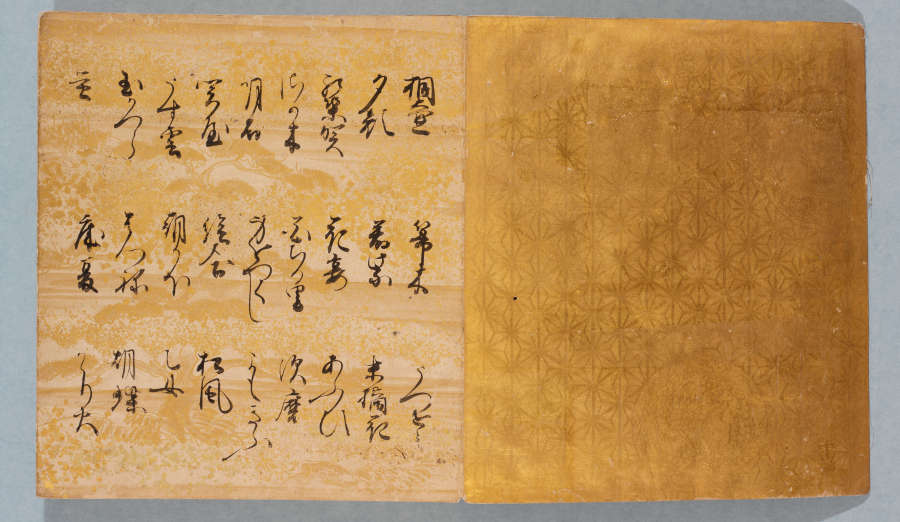 桐壺 箒木 うつせみ
夕顔 若紫 末摘花
紅葉賀 花宴 あふひ
さか木 花ちる里 須磨
明石 みをつくし よもきふ
関屋 絵合 松風
うす雲 朝かほ 乙女
玉かつら はつね 胡蝶
蛍 床夏 かゝり火